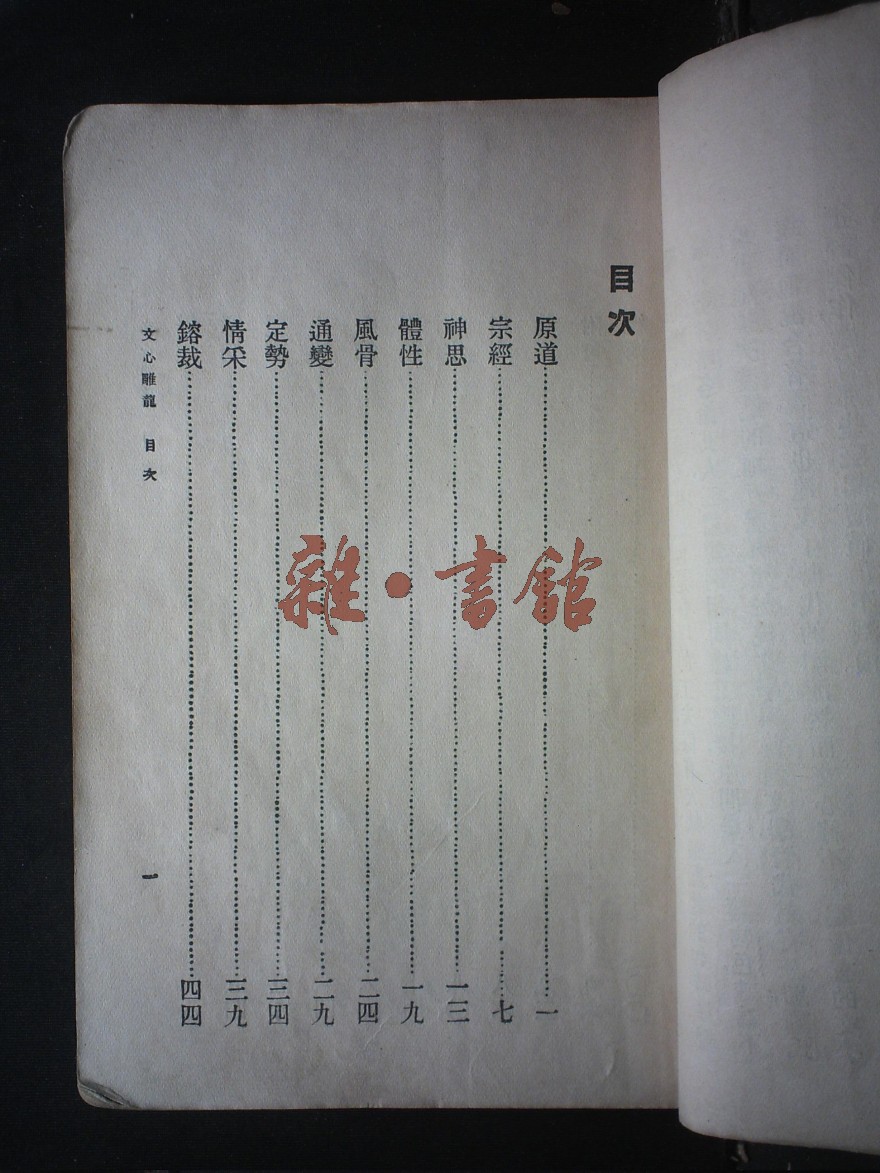 目次
原道……一
宗經……七
神思……一三
體性……一九
風骨……二四
通變……二九
定勢……三四
情采……三九
鎔裁……四四
文心雕龍 目次
一
雜·書館